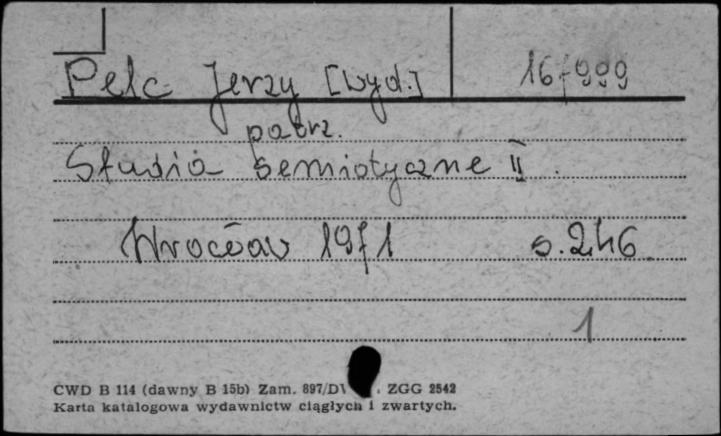 Pelc Jerzy [wyd.] 167999
patrz.
Studia semiotyczne II.
Wrocław 1971 s. 246
1
CWD B 114 (dawny B 15b) Zam. 897/D ZGG 2542
Karta katalogowa wydawnictw ciągłych i zwartych.